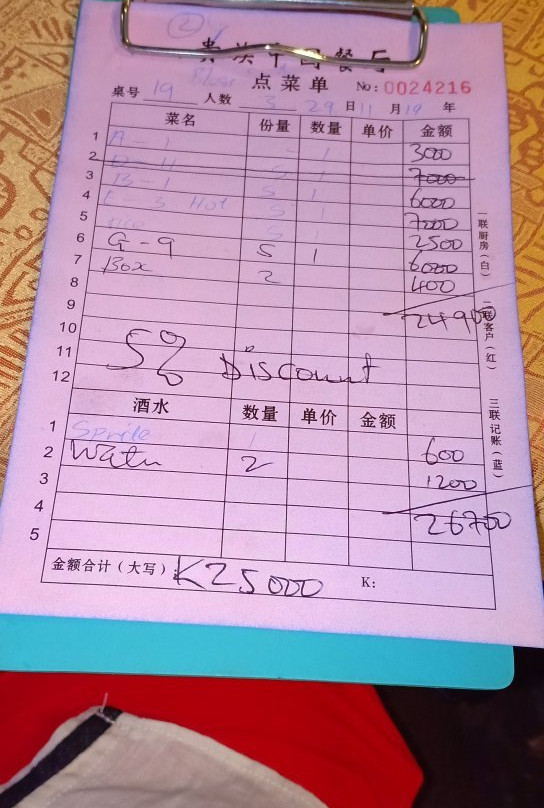 2
点菜单 No: 0024216
桌号 19 人数 5 29 日 11 月 19 年
菜名 份量 数量 单价 金额
1 A - 1 1 3000
2 D - 11 S 1 7000
3 B - 1 S 1 6000
4 E - 3 Hot S 1 7000
5 S 1 2500
6 G - 9 S 1 6000
7 Box 2 400
8 24900
9
10
11 5% Discount
12
酒水 数量 单价 金额
1 Sprite 1 600
2 Water 2 1200
3 26700
4
5
金额合计（大写）: K25000 K:
一联厨房（白）
二联客户（红）
三联记账（蓝）